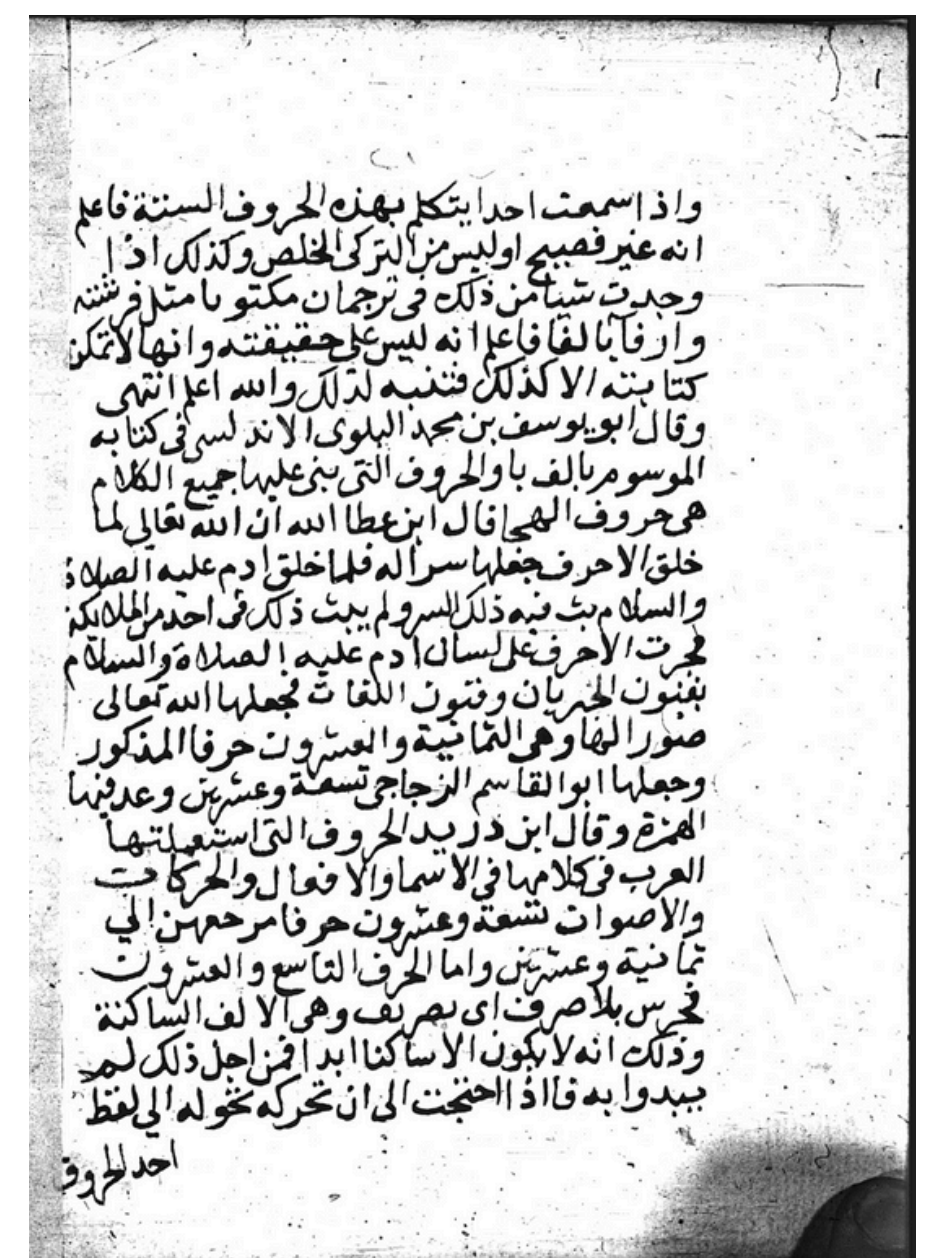 واذا سمعت احدا يتكلم بهذه الحروف الستة فاعلم
انه غير فصيح او ليس من التركى الخلص وكذلك اذا
وجدت شيا من ذلك فى ترجمان مكتوبا مثل فرشته
وارفا بالفا فاعلم انه ليس على حقيقته وانها لا تمكن
كتابته الا كذلك فتنبه لذلك والله اعلم انتهى
وقال ابو يوسف بن محمد البلوى الاندلسى فى كتابه
الموسوم بالف با والحروف التى بنى عليها جميع الكلام
هى حروف الهجا قال ابن عطا الله ان الله تعالى لما
خلق الاحرف جعلها سرا له فلما خلق ادم عليه الصلاة
والسلام بث فيه ذلك السر ولم يبث ذلك فى احد من الملايكة
فجرت الاحرف على لسان ادم عليه الصلاة والسلام
بفنون الجريان وفنون اللغات فجعلها الله تعالى
صورا لها وهى الثمانية والعشرون حرفا المذكور
وجعلها ابو القاسم الزجاجى تسعة وعشرين وعد فيها
الهمزة وقال ابن دريد الحروف التى استعملتها
العرب فى كلامها فى الاسما والافعال والحركات
والاصوات تسعة وعشرون حرفا مرجعهن الي
ثمانية وعشرين واما الحرف التاسع والعشرون
فجرس بلا صرف اى تصريف وهى الالف الساكنة
وذلك انه لا يكون الا ساكنا ابدا فمن اجل ذلك لم
يبدوا به فااذا احتجت الى ان تحركه تحوله الي لفظ
احد الحروف